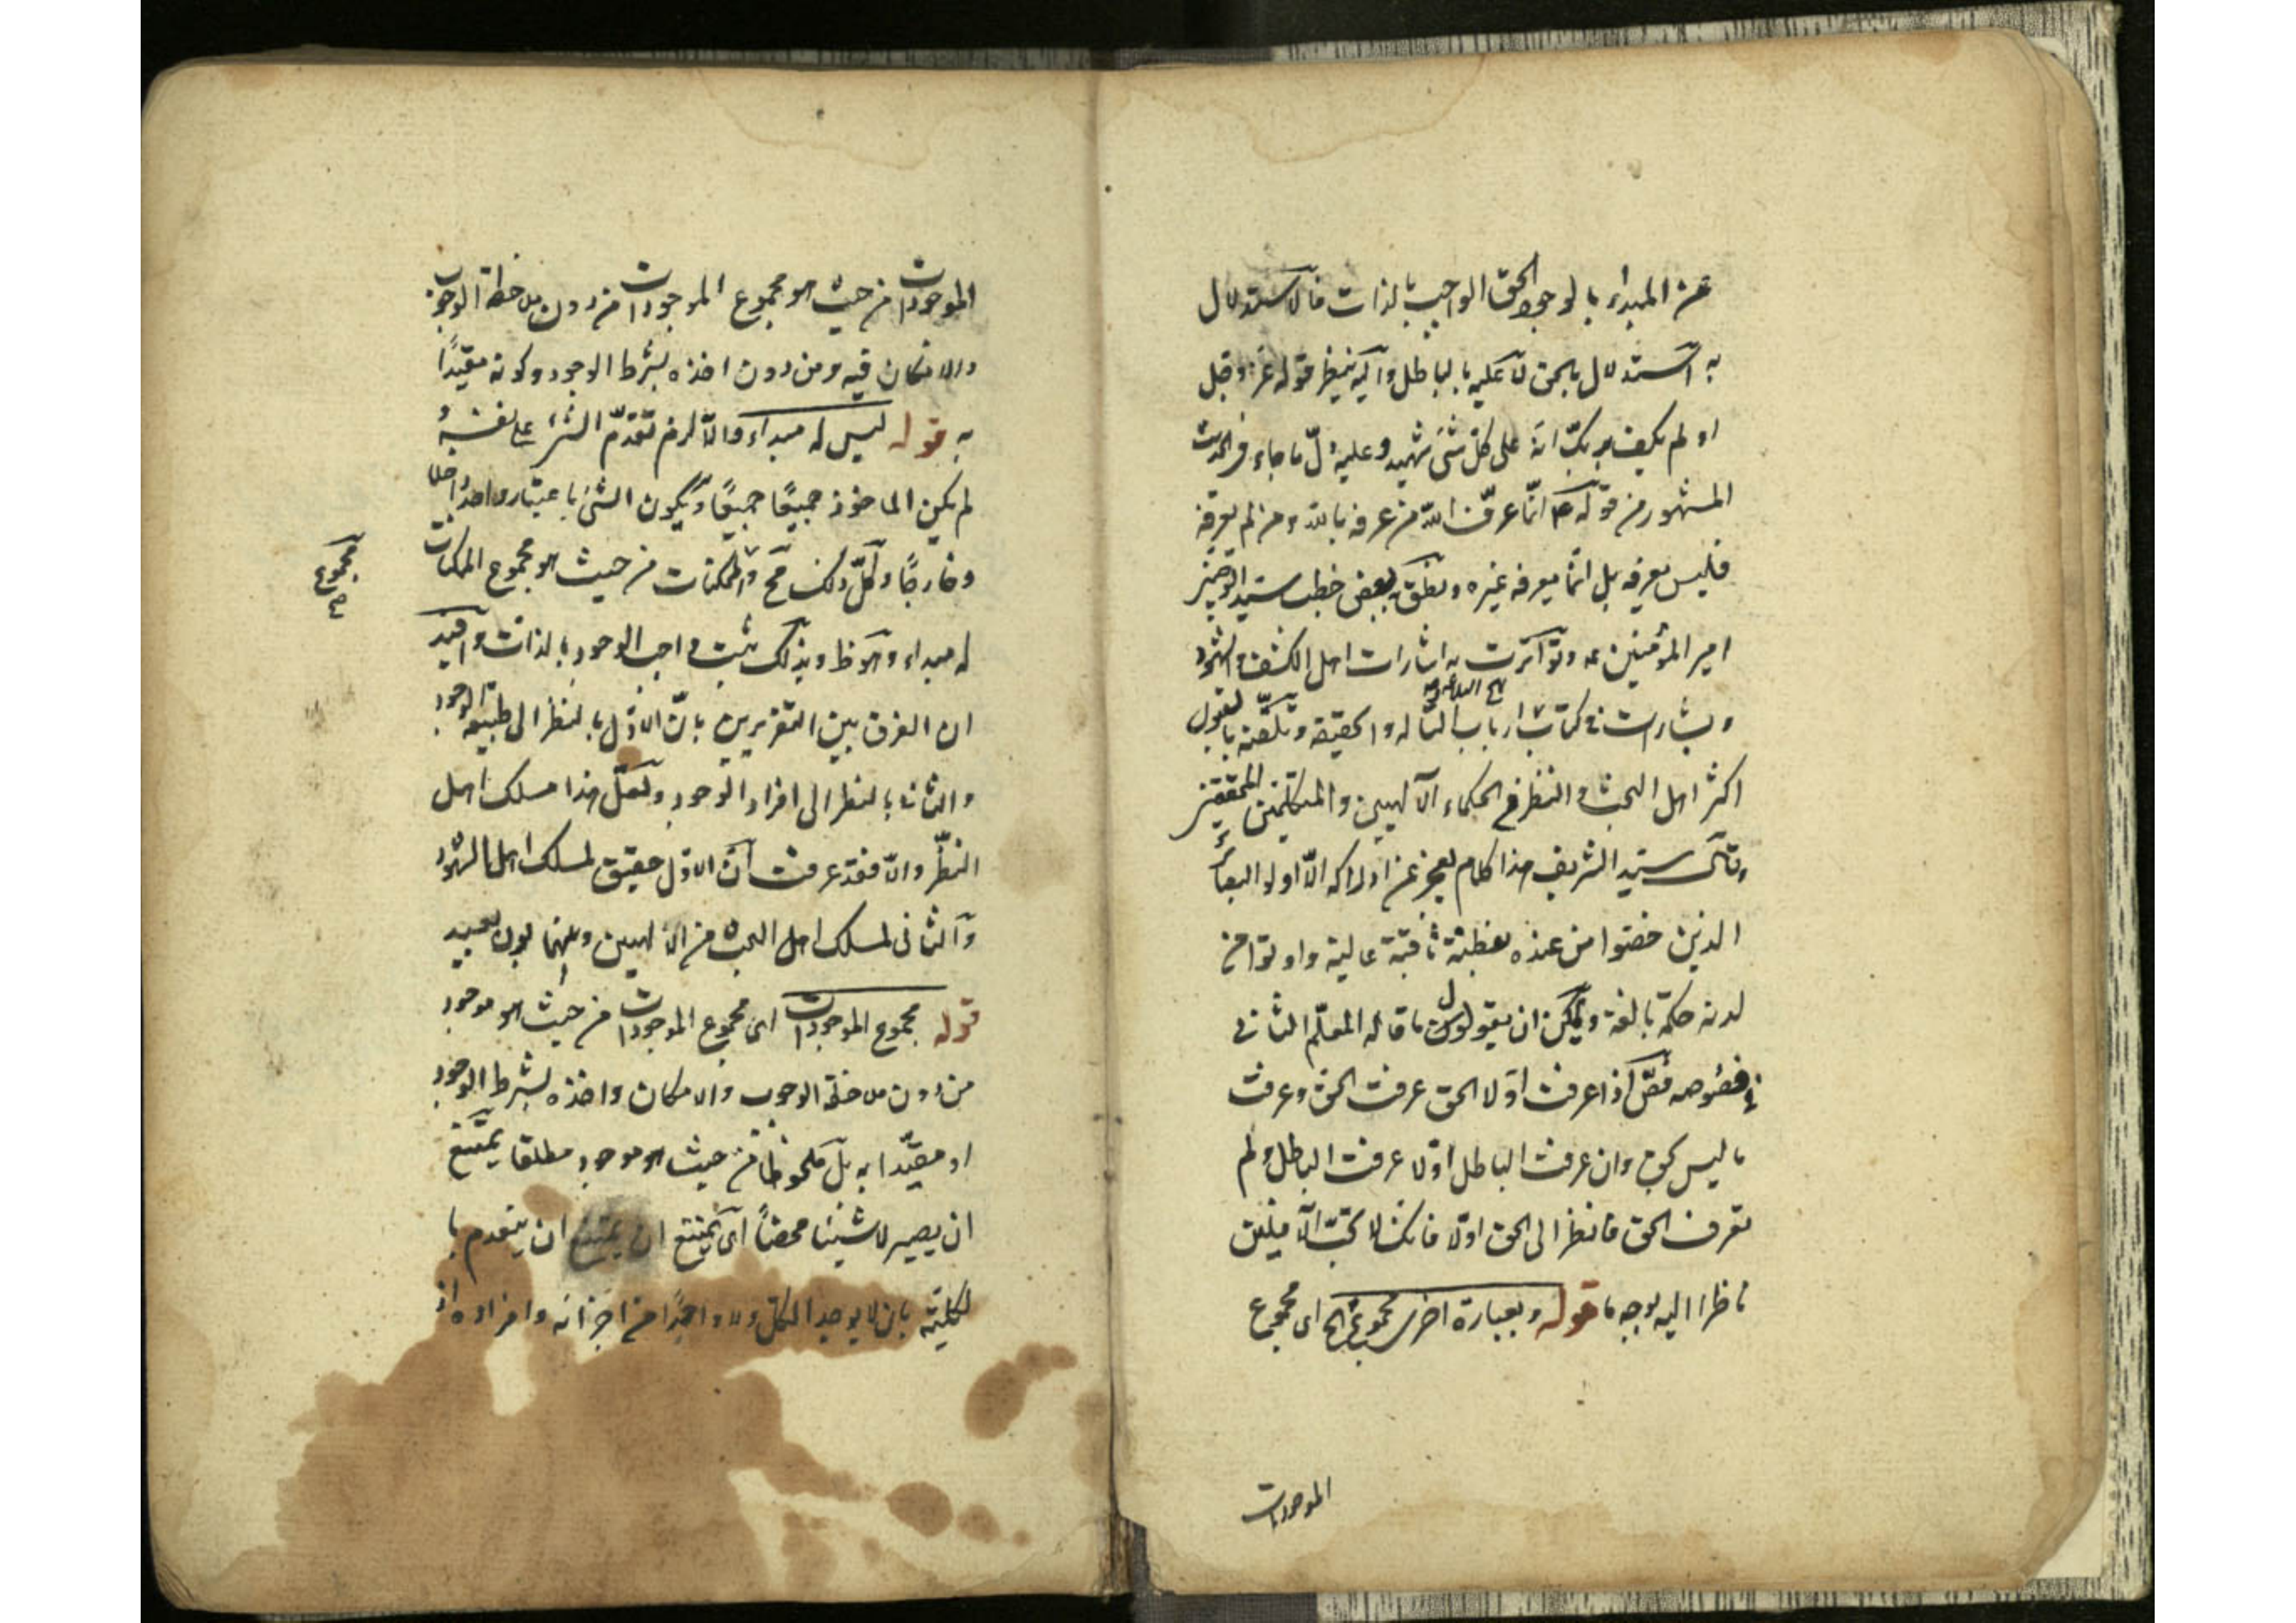 عن المبداء بالوجود الحق الواجب بالذات فالاستدلال
به استدلال بالحق لا عليه بالباطل واليه ينظر قوله عز وجل
او لم يكف بربك انه على كل شئ شهيد وعليه دل ما جاء فى الحديث
المشهور من قوله ع انما عرف الله من عرفه بالله ومن لم يعرفه
فليس يعرفه بل انما يعرفه غيره ونطق بعض خطب سيد الوصيين
امير المؤمنين عه وتواترت به اشارات اهل الكشف والشهود
وبشارات فى كتاب ارباب التاله والحقيقة وتلقته بالقبول
اكثر اهل البحث والنظر من الحكماء الالهيين والمتكلمين المحققين
وقال سيد الشريف هذا كلام يعجز عن ادراكه الا اولو البصائر
الذين خصوا من عنده بفطنة ثاقبة عالية واوتوا من
لدنه حكمة بالغة ويمكن ان يقول ما قاله المعلم الثانى
فى فصوصه فص اذا عرفت اولا الحق عرفت الحق وعرفت
ما ليس بحق وان عرفت الباطل اولا عرفت الباطل ولم
تعرف الحق فانظر الى الحق اولا فانك لا تحب الآفلين
ناظرا اليه بوجه ما قوله وبعبارة اخرى مجموع الخ اى مجموع
الموجودات
الموجودات من حيث هو مجموع الموجودات من دون ملاحظة الوجوب
والامكان فيه ومن دون اخذه بشرط الوجود وكونه مقيدًا
به قوله ليس له مبداء والا لزم تقدم الشئ على نفسه و
لم يكن الماخوذ جميعًا جميعًا ويكون الشئ باعتبار واحد داخلا
وخارجًا وكل ذلك مح والممكنات من حيث هو مجموع الممكنات
مجموع
له مبداء وهو ظ وبذلك ثبت واجب الوجود بالذات وافيد
ان الفرق بين التقريرين بان الاول بالنظر الى طبيعة الوجود
والثانى بالنظر الى افراد الوجود ولعل هذا مسلك اهل
النظر والا فقد عرفت ان الاول حقيق لمسلك اهل الشهود
والثانى لمسلك اهل البحث من الالهيين وبينهما بون بعيد
قوله مجموع الموجودات اى مجموع الموجودات من حيث هو موجود
من دون ملاحظة الوجوب والامكان واخذه بشرط الوجود
او مقيدا به بل ملحوظا من حيث هو موجود مطلقا يمتنع
ان يصير لا شيئا محضاً اى يمتنع ان ينعدم با
لكلية بان لا يوجد الكل ولا واحدًا من اجزائه وافراده اذ